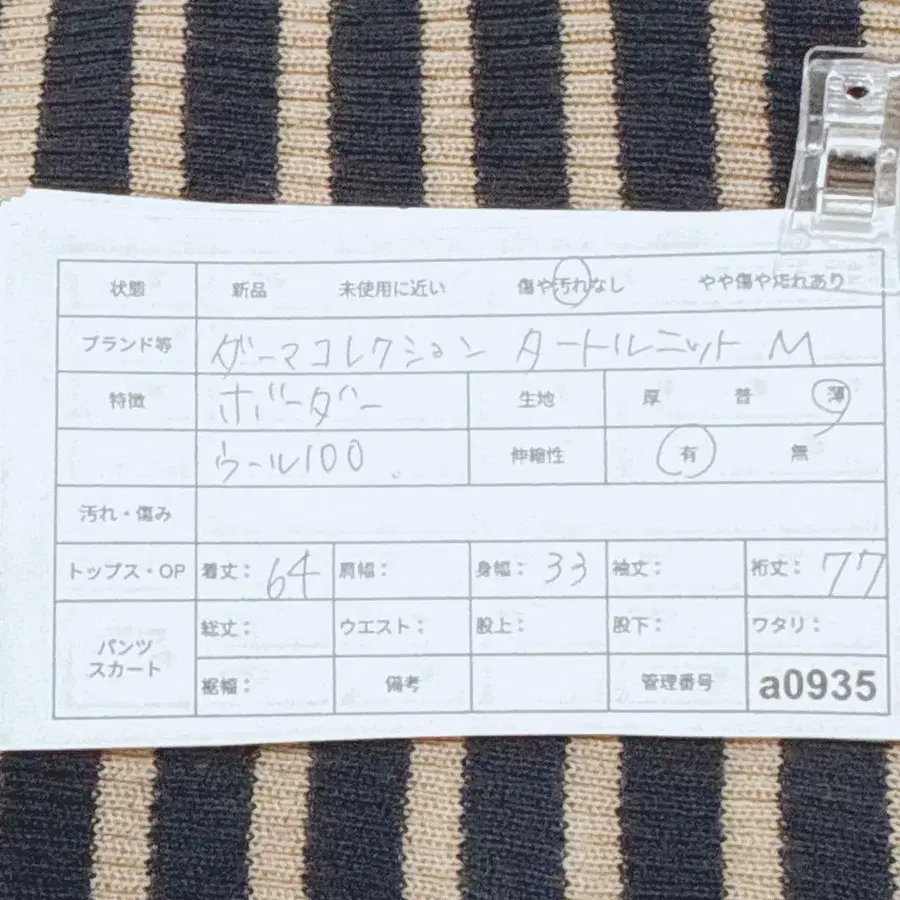 状態 新品 未使用に近い 傷や汚れなし やや傷や汚れあり
ブランド等 ダーマコレクション タートルニット M
特徴 ボーダー 生地 厚 普 薄
ウール100 伸縮性 有 無
汚れ・傷み
トップス・OP 着丈: 64 肩幅: 身幅: 33 袖丈: 裄丈: 77
パンツ スカート 総丈: ウエスト: 股上: 股下: ワタリ:
裾幅: 備考 管理番号 a0935